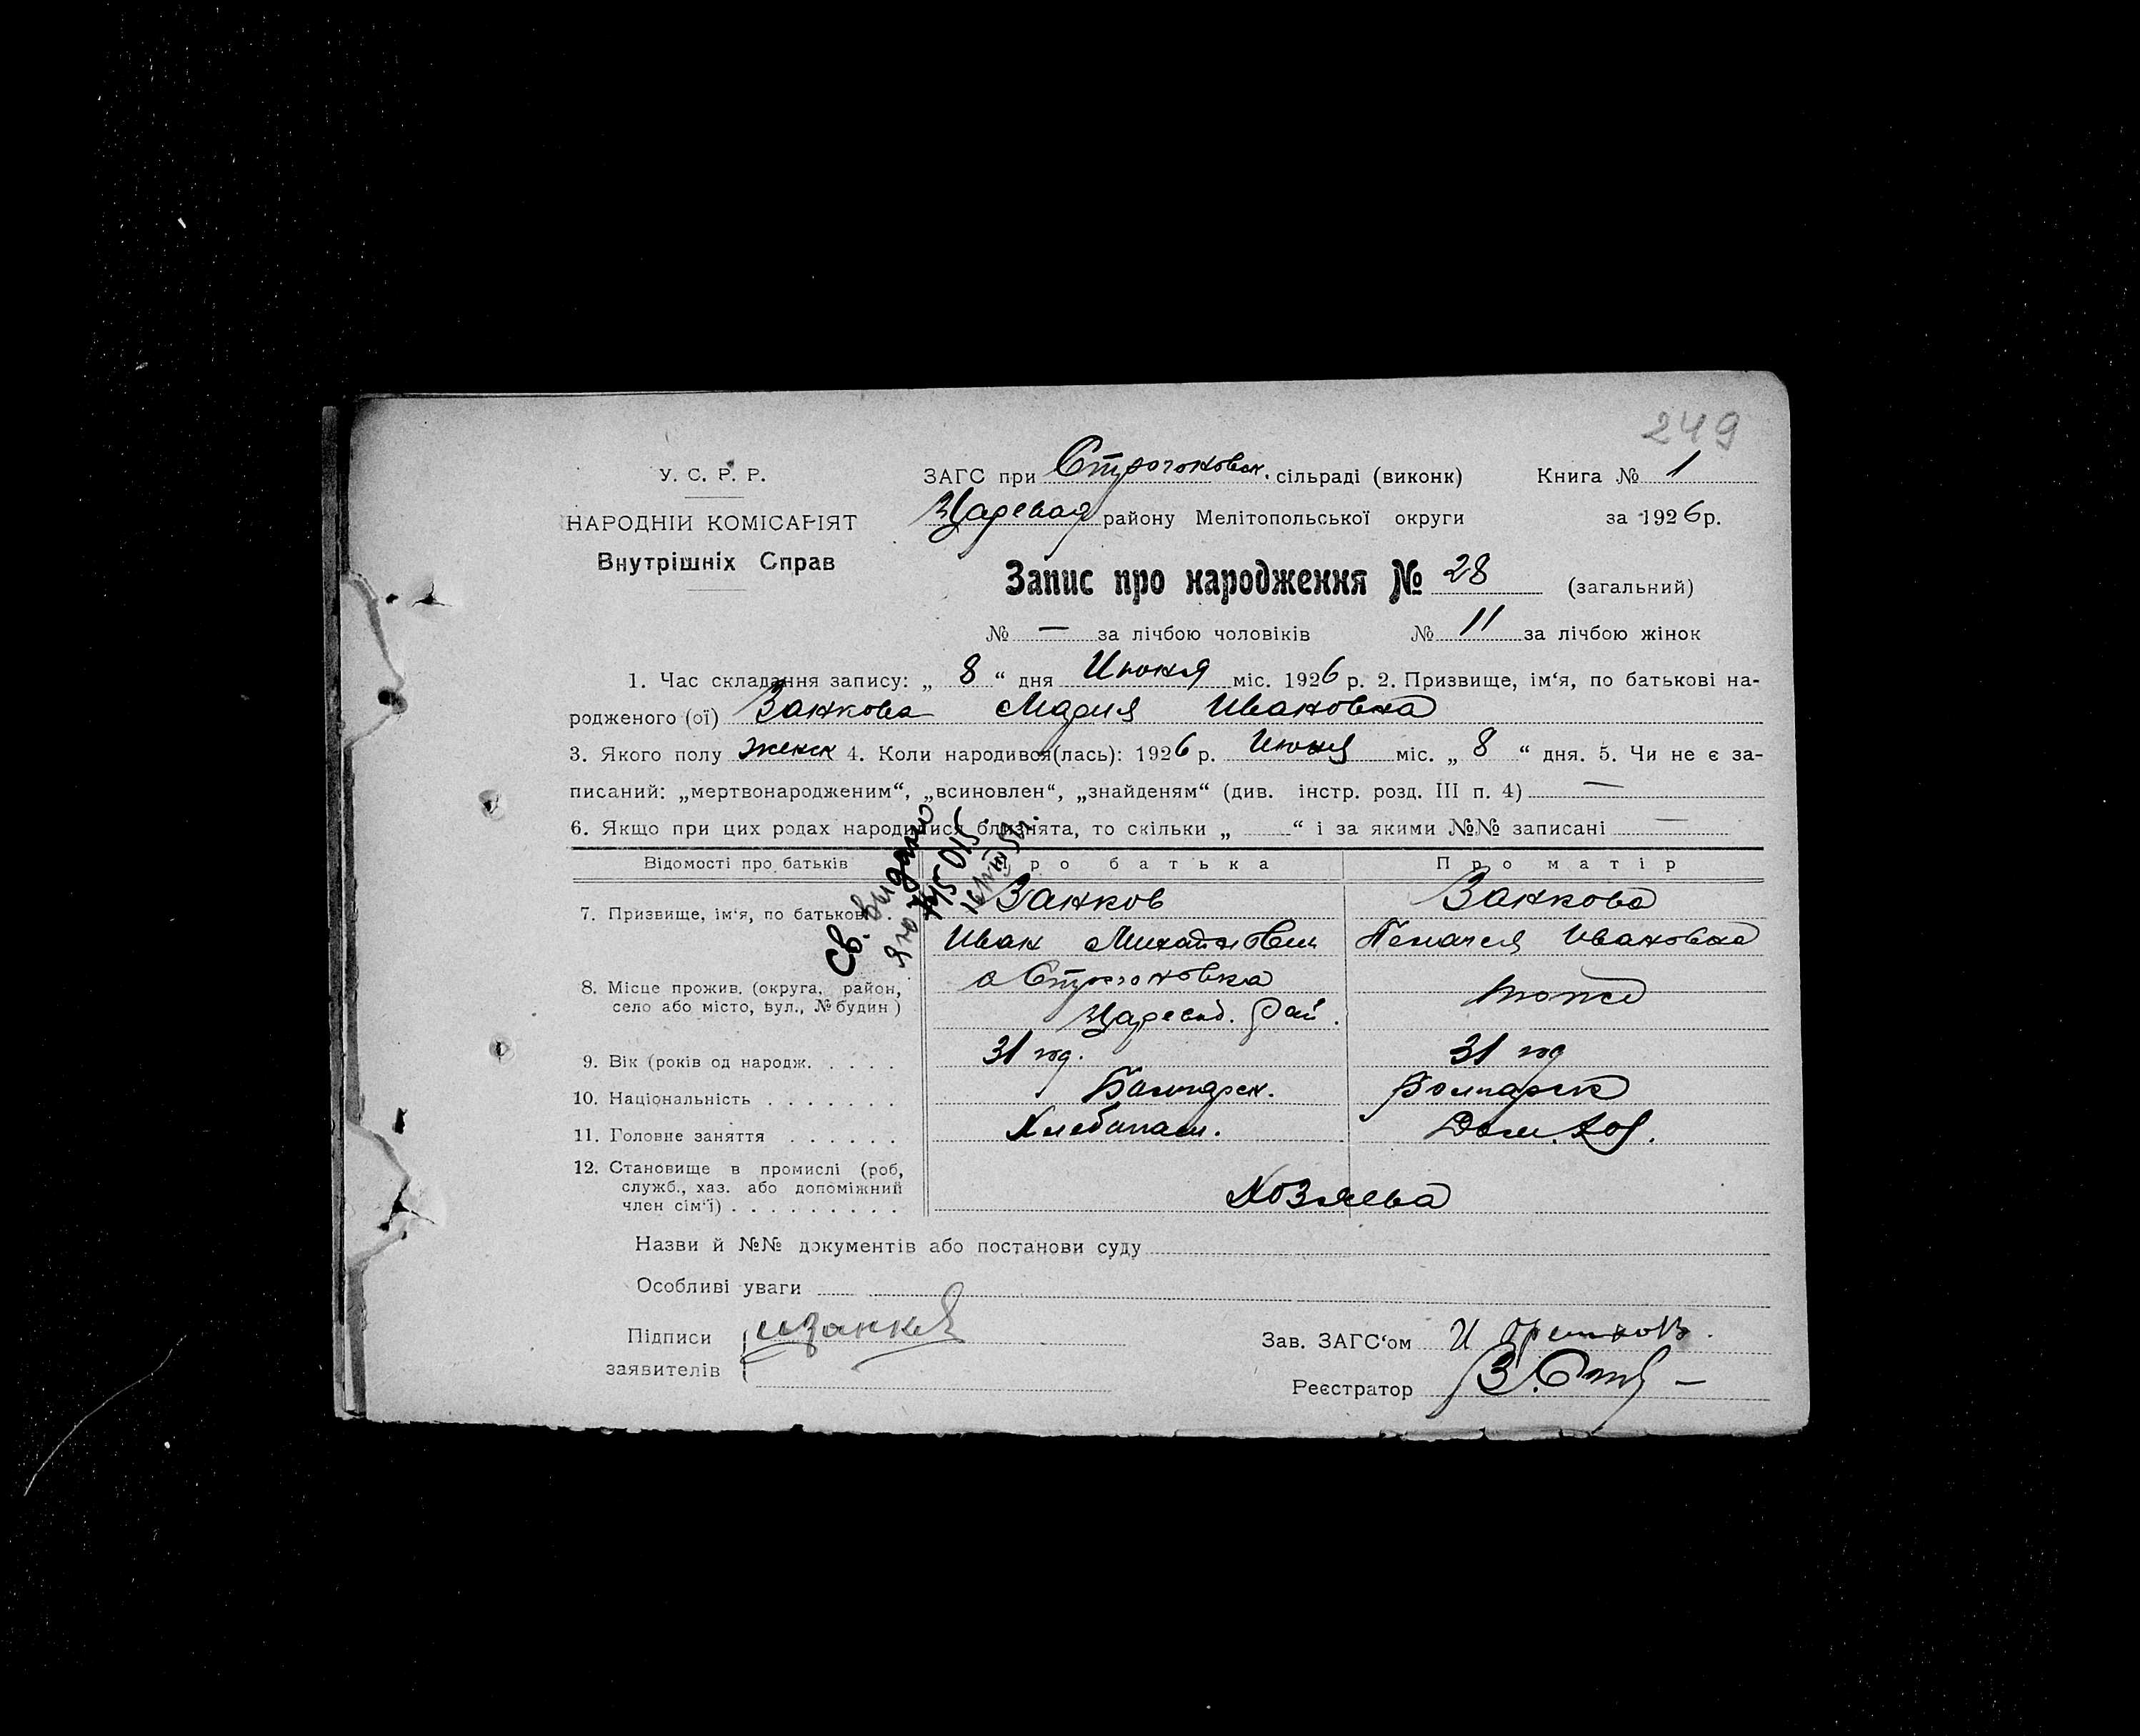 249
У. С. Р. Р.
НАРОДНІЙ КОМІСАРІЯТ
Внутрішніх Справ
ЗАГС при Строгоновск. сільраді (виконк) Книга № 1
Царевод району Мелітопольської округи за 1926 р.
Запис про народження № 28 (загальний)
№ — за лічбою чоловіків № 11 за лічбою жінок
1. Час складання запису: „ 8 “ дня Июня міс. 1926 р. 2. Призвище, ім‘я, по батькові на-
родженого (ої) Занкова Мария Ивановна
3. Якого полу женск 4. Коли народився(лась): 1926 р. Июня міс. „ 8 “ дня. 5. Чи не є за-
писаний: „мертвонародженим“, „всиновлен“, „знайденям“ (див. інстр. розд. III п. 4) —
6. Якщо при цих родах народилися близнята, то скільки „ “ і за якими №№ записані —
Св. видано
ЯЮ
Відомості про батьків Про батька Про матір
7. Призвище, ім‘я, по батькові . Занков Занкова
Иван Михайлович Ивановна
8. Місце прожив. (округа, район, село або місто, вул., № будин) с Строгоновка тоже
Царевод. Рай.
9. Вік (років од народж. . . . . 31 год. 31 год
10. Національність . . . . . . . Болгарск. Болгарск
11. Головне заняття . . . . . . Хлебопаш. Дом. хоз.
12. Становище в промислі (роб,
служб., хаз. або допоміжний
член сім‘ї) . . . . . . . . . Хозяева
Назви й №№ документів або постанови суду
Особливі уваги
Підписи заявителів ИЗанков
Зав. ЗАГС‘ом И
Реєстратор